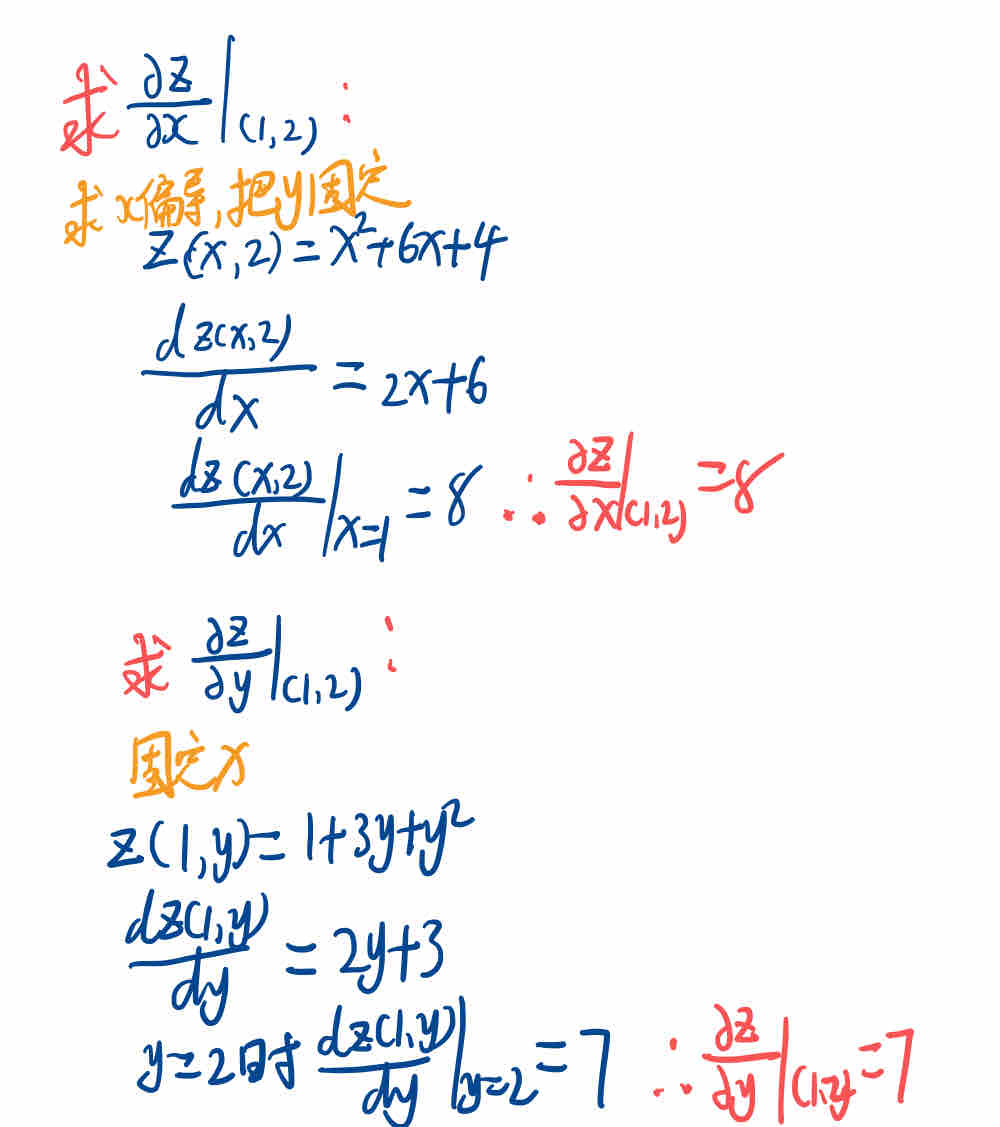 求 ∂z/∂x|(1,2) :
求x偏导,把y固定
z(x,2)=x²+6x+4
dz(x,2)/dx = 2x+6
dz(x,2)/dx|x=1 = 8 ∴ ∂z/∂x|(1,2) =8
求 ∂z/∂y|(1,2) :
固定x
z(1,y)= 1+3y+y²
dz(1,y)/dy = 2y+3
y=2时 dz(1,y)/dy|y=2 = 7 ∴ ∂z/∂y|(1,2) =7